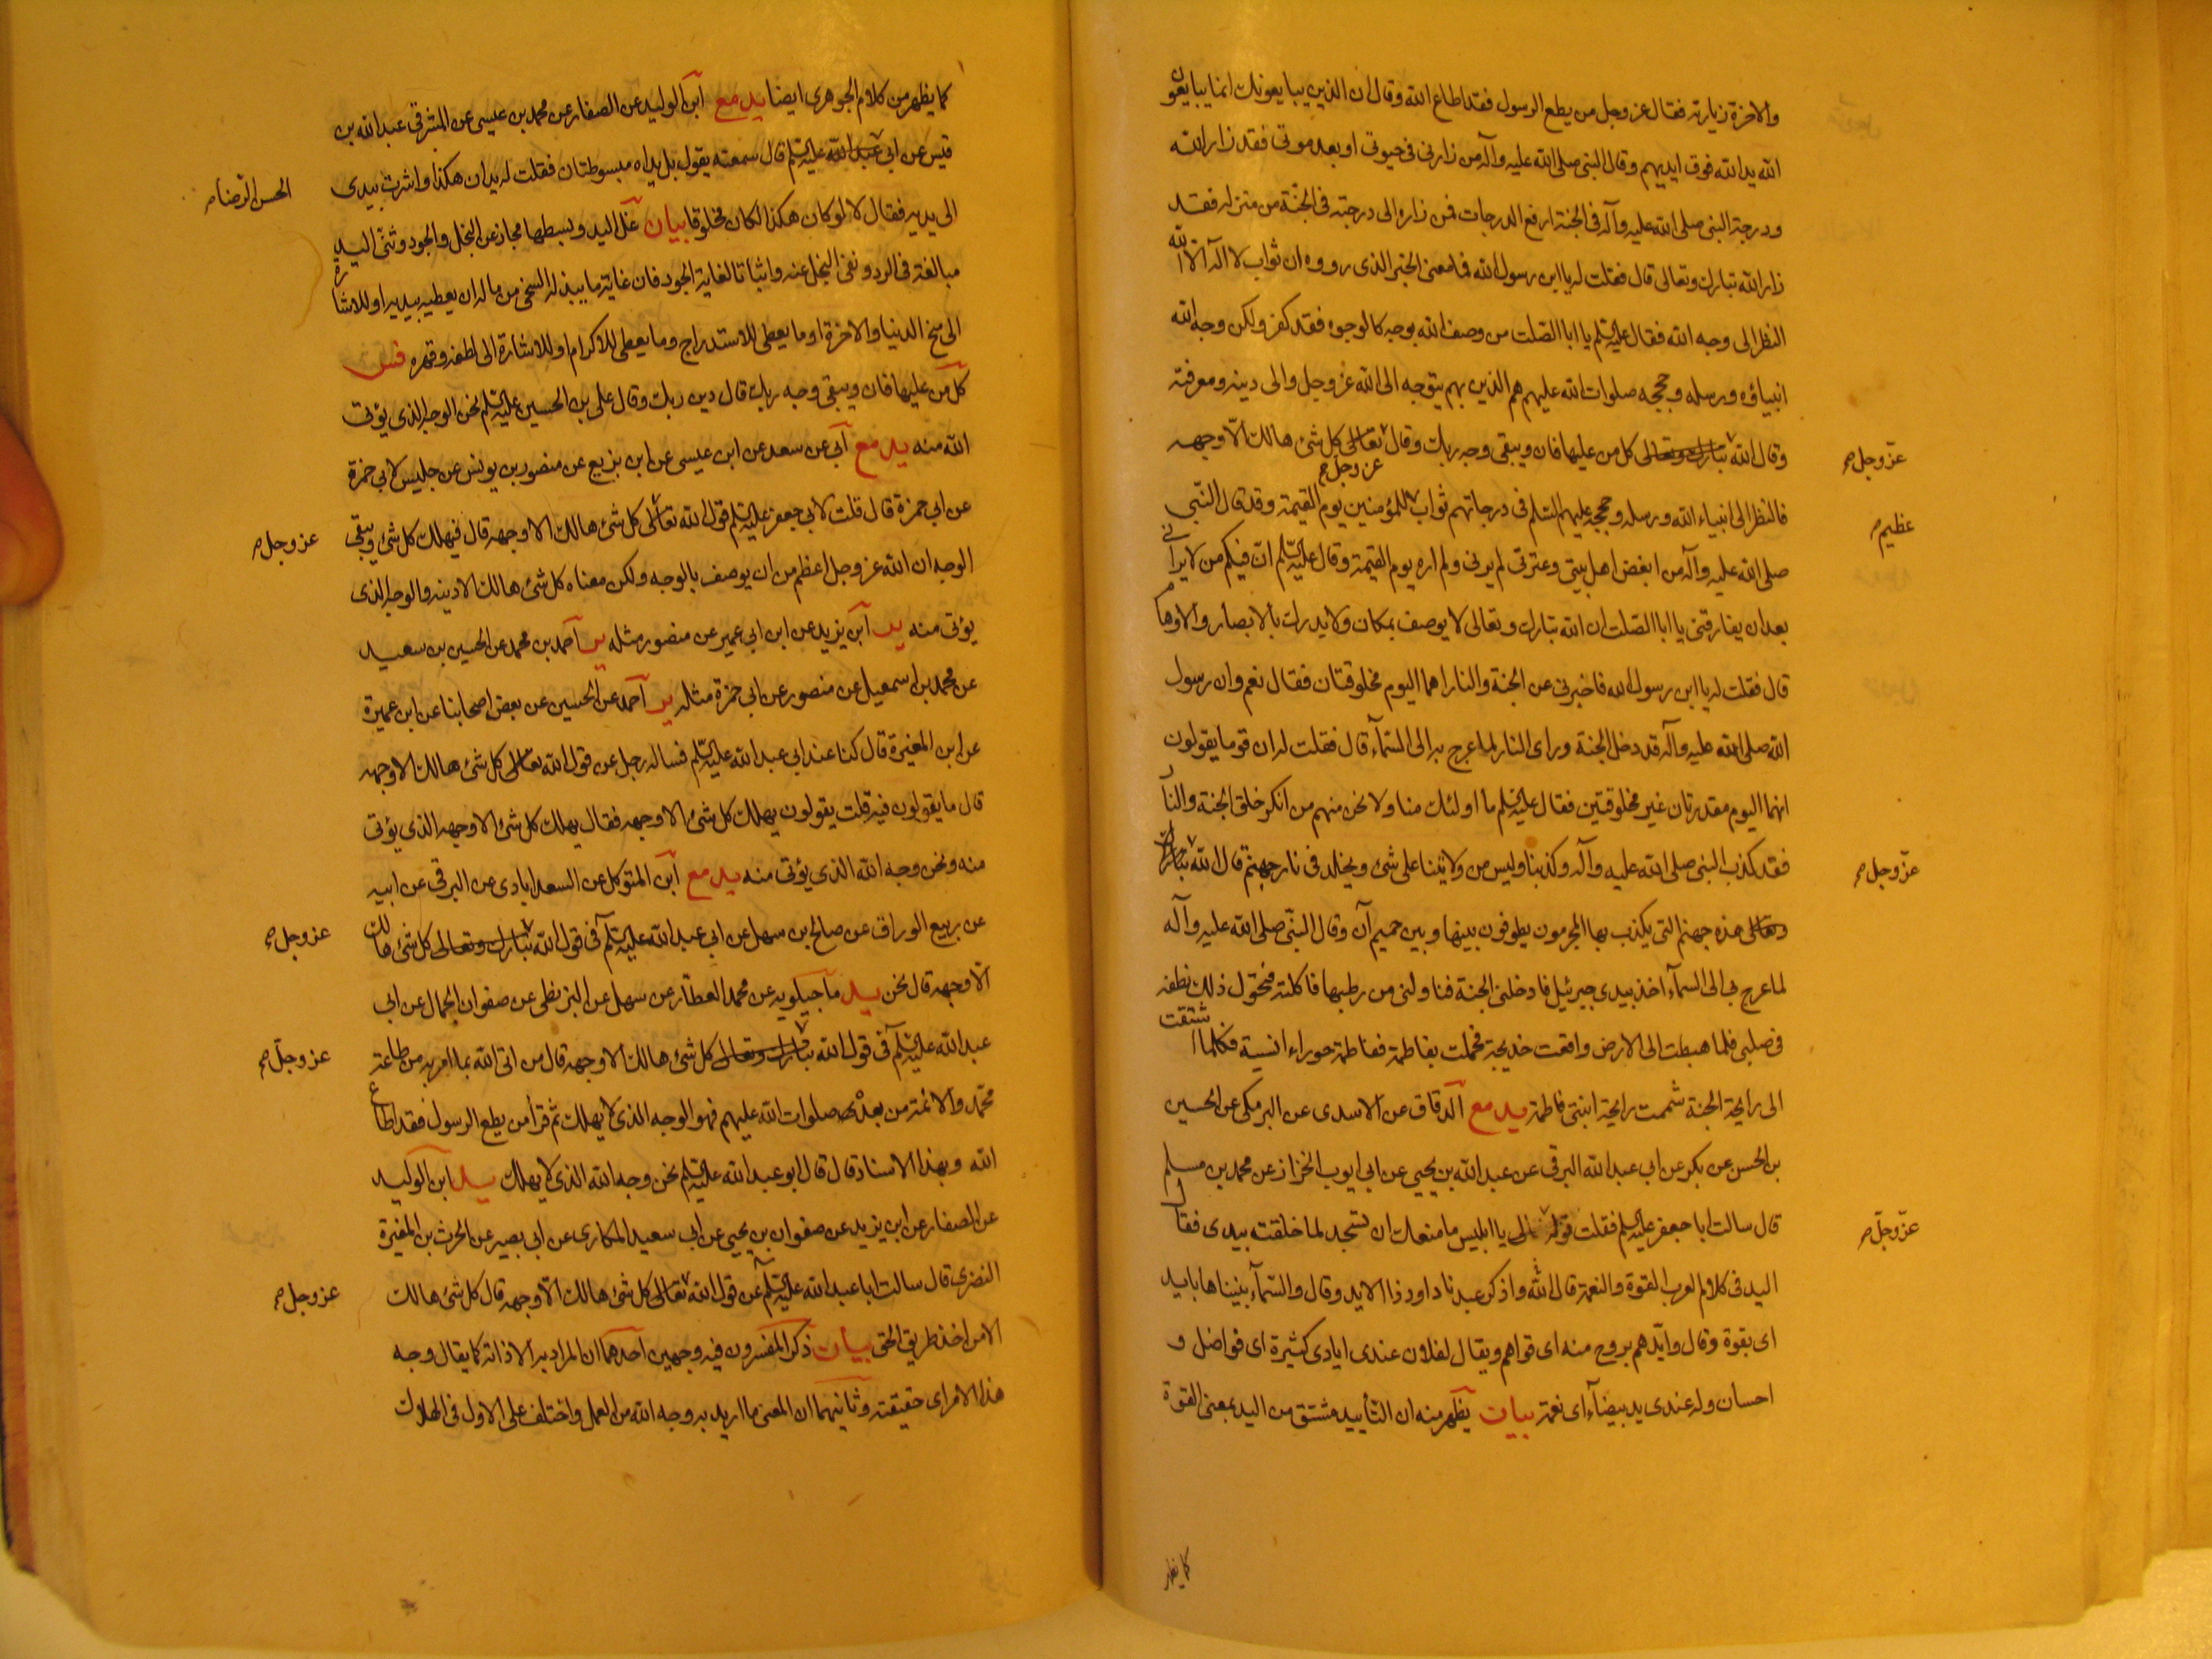 والاخرة زيارته فقال عز وجل من يطع الرسول فقد اطاع الله وقال ان الذين يبايعونك انما يبايعون
الله يد الله فوق ايديهم وقال النبى صلى الله عليه وآله من زارنى فى حيوتى او بعد موتى فقد زار الله
ودرجة النبى صلى الله عليه وآله فى الجنة ارفع الدرجات فمن زاره الى درجته فى الجنة من منزله فقد
زار الله تبارك وتعالى قال فقلت له يا ابن رسول الله فما معنى الخبر الذى رووه ان ثواب لا اله الا الله
النظر الى وجه الله فقال عليه السلم يا ابا الصلت من وصف الله بوجه كالوجوه فقد كفر ولكن وجه الله
انبياؤه ورسله وحججه صلوات الله عليهم هم الذين بهم يتوجه الى الله عز وجل والى دينه ومعرفته
وقال الله تبارك وتعالى كل من عليها فان ويبقى وجه ربك وقال تعالى كل شئ هالك الا وجهه
عز وجل ص
عز وجل ص
فالنظر الى انبياء الله ورسله وحججه عليهم السلم فى درجاتهم ثواب للمؤمنين يوم القيمة وقد قال النبى
عظيم ص
صلى الله عليه وآله من ابغض اهل بيتى وعترتى لم يرنى ولم اره يوم القيمة وقال عليه السلم ان فيكم من لا يرانى
بعد ان يفارقنى يا ابا الصلت ان الله تبارك وتعالى لا يوصف بمكان ولا يدرك بالابصار والاوهام
قال فقلت له يا ابن رسول الله فاخبرنى عن الجنة والنار اهما اليوم مخلوقتان فقال نعم وان رسول
الله صلى الله عليه وآله قد دخل الجنة وراى النار لما عرج به الى السمآء قال فقلت له ان قوما يقولون
انهما اليوم مقدرتان غير مخلوقتين فقال عليه السلم ما اولئك منا ولا نحن منهم من انكر خلق الجنة والنار
فقد كذب النبى صلى الله عليه وآله وكذبنا وليس من ولايتنا على شئ ويخلد فى نار جهنم قال الله تبارك
عز وجل ص
وتعالى هذه جهنم التى يكذب بها المجرمون يطوفون بينها وبين حميم آن وقال النبى صلى الله عليه وآله
لما عرج بى الى السمآء اخذ بيدى جبرئيل فادخلنى الجنة فناولنى من رطبها فاكلته فتحول ذلك نطفة
فى صلبى فلما هبطت الى الارض واقعت خديجة فحملت بفاطمة ففاطمة حوراء انسية فكلما اشتقت
الى رايحة الجنة شممت رايحة ابنتى فاطمة يد مع الدقاق عن الاسدى عن البرمكى عن الحسين
بن الحسن عن بكر عن ابى عبد الله البرقى عن عبد الله بن يحيى عن ابى ايوب الخزاز عن محمد بن مسلم
قال سالت ابا جعفر عليه السلم فقلت قوله تعالى يا ابليس ما منعك ان تسجد لما خلقت بيدى فقال
عز وجل ص
اليد فى كلام العرب القوة والنعمة قال الله واذكر عبدنا داود ذا الايد وقال والسمآء بنيناها بايد
اى بقوة وقال وايدهم بروح منه اى قواهم ويقال لفلان عندى ايادى كثيرة اى فواضل و
احسان وله عندى يد بيضآء اى نعمة بيان يظهر منه ان التأييد مشتق من اليد بمعنى القوة
كما يظهر
كما يظهر من كلام الجوهرى ايضا يد مع ابن الوليد عن الصفار عن محمد بن عيسى عن المشرقى عبد الله بن
قيس عن ابى عبد الله عليه السلم قال سمعته يقول بل يداه مبسوطتان فقلت له يدان هكذا واشرت بيدى
الحسن الرضا ص
الى يديه فقال لا لو كان هكذا لكان مخلوقا بيان غل اليد وبسطها مجاز عن البخل والجود وثنى اليد
مبالغة فى الرد ونفى البخل عنه واثباتا لغاية الجود فان غاية ما يبذله السخى من ماله ان يعطيه بيديه او للاشارة
الى منح الدنيا والاخرة او ما يعطى للاستدراج وما يعطى للاكرام او للاشارة الى لطفه وقهره فس
كل من عليها فان ويبقى وجه ربك قال دين ربك وقال على بن الحسين عليه السلم نحن الوجه الذى يؤتى
الله منه يد مع ابى عن سعد عن ابن عيسى عن ابن بزيع عن منصور بن يونس عن جليس لابى حمزة
عن ابى حمزة قال قلت لابى جعفر عليه السلم قول الله تعالى كل شئ هالك الا وجهه قال فيهلك كل شئ ويبقى
عز وجل ص
الوجه ان الله عز وجل اعظم من ان يوصف بالوجه ولكن معناه كل شئ هالك الا دينه والوجه الذى
يؤتى منه ير ابن يزيد عن ابن ابى عمير عن منصور مثله ير احمد بن محمد عن الحسين بن سعيد
عن محمد بن اسمعيل عن منصور عن ابى حمزة مثله ير احمد عن الحسين عن بعض اصحابنا عن ابن عميرة
عن ابن المغيرة قال كنا عند ابى عبد الله عليه السلم فساله رجل عن قول الله تعالى كل شئ هالك الا وجهه
قال ما يقولون فيه قلت يقولون يهلك كل شئ الا وجهه فقال يهلك كل شئ الا وجهه الذى يؤتى
منه ونحن وجه الله الذى يؤتى منه يد مع ابن المتوكل عن السعدابادى عن البرقى عن ابيه
عن ربيع الوراق عن صالح بن سهل عن ابى عبد الله عليه السلم فى قول الله تبارك وتعالى كل شئ هالك
عز وجل ص
الا وجهه قال نحن يد ماجيلويه عن محمد العطار عن سهل عن البزنطى عن صفوان الجمال عن ابى
عبد الله عليه السلم فى قول الله تبارك وتعالى كل شئ هالك الا وجهه قال من اتى الله بما امر به من طاعة
عز وجل ص
محمد والائمة من بعده صلوات الله عليهم فهو الوجه الذى لا يهلك ثم قرأ من يطع الرسول فقد اطاع
الله وبهذا الاسناد قال قال ابو عبد الله عليه السلم نحن وجه الله الذى لا يهلك يد ابن الوليد
عن الصفار عن ابن يزيد عن صفوان بن يحيى عن ابى سعيد المكارى عن ابى بصير عن الحرث بن المغيرة
النضرى قال سالت ابا عبد الله عليه السلم عن قول الله تعالى كل شئ هالك الا وجهه قال كل شئ هالك
عز وجل ص
الا من اخذ طريق الحق بيان ذكر المفسرون فيه وجهين احدهما ان المراد به الا ذاته كما يقال وجه
هذا الامر اى حقيقته وثانيهما ان المعنى ما اريد به وجه الله من العمل واختلف على الاول فى الهلاك